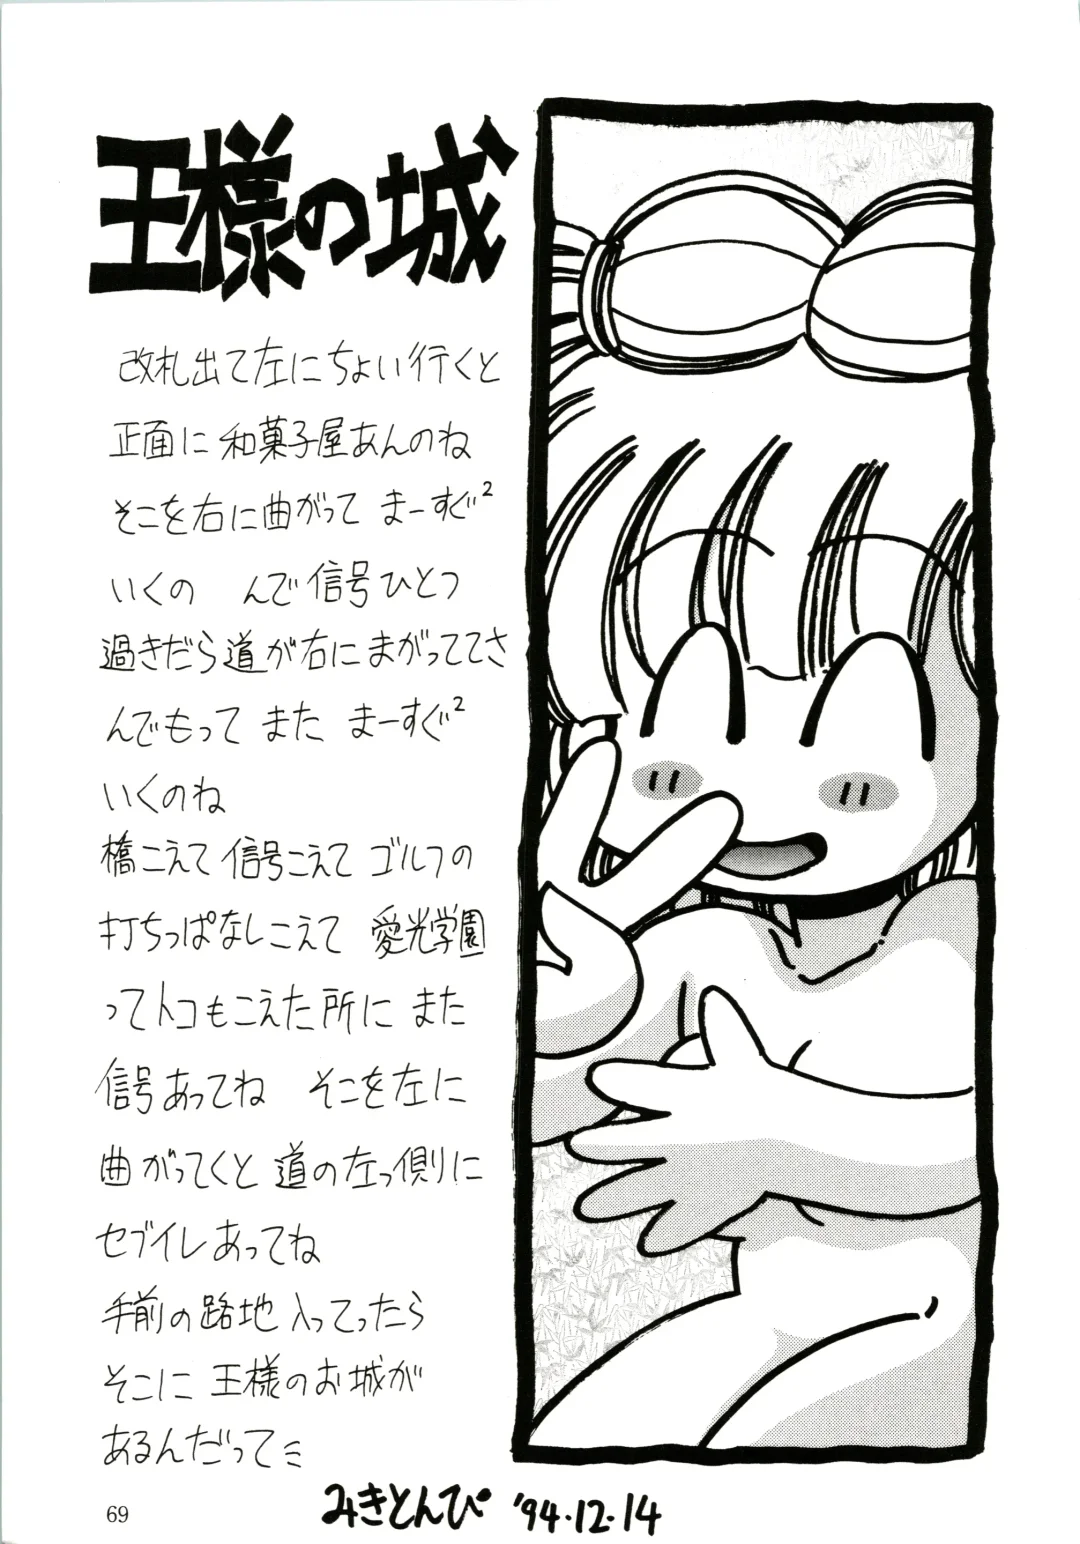 王様の城
改札出て左にちょい行くと
正面に和菓子屋あんのね
そこを右に曲がって まーすぐ²
いくの んで信号ひとつ
過きだら道が右にまがっててさ
んでもって また まーすぐ²
いくのね
橋こえて信号こえて ゴルフの
打ちっぱなしこえて 愛光学園
ってトコもこえた所に また
信号あってね そこを左に
曲がってくと 道の左っ側に
セブイレあってね
手前の路地入ってったら
そこに 王様のお城が
あるんだって
みきとんぴ '94.12.14
69